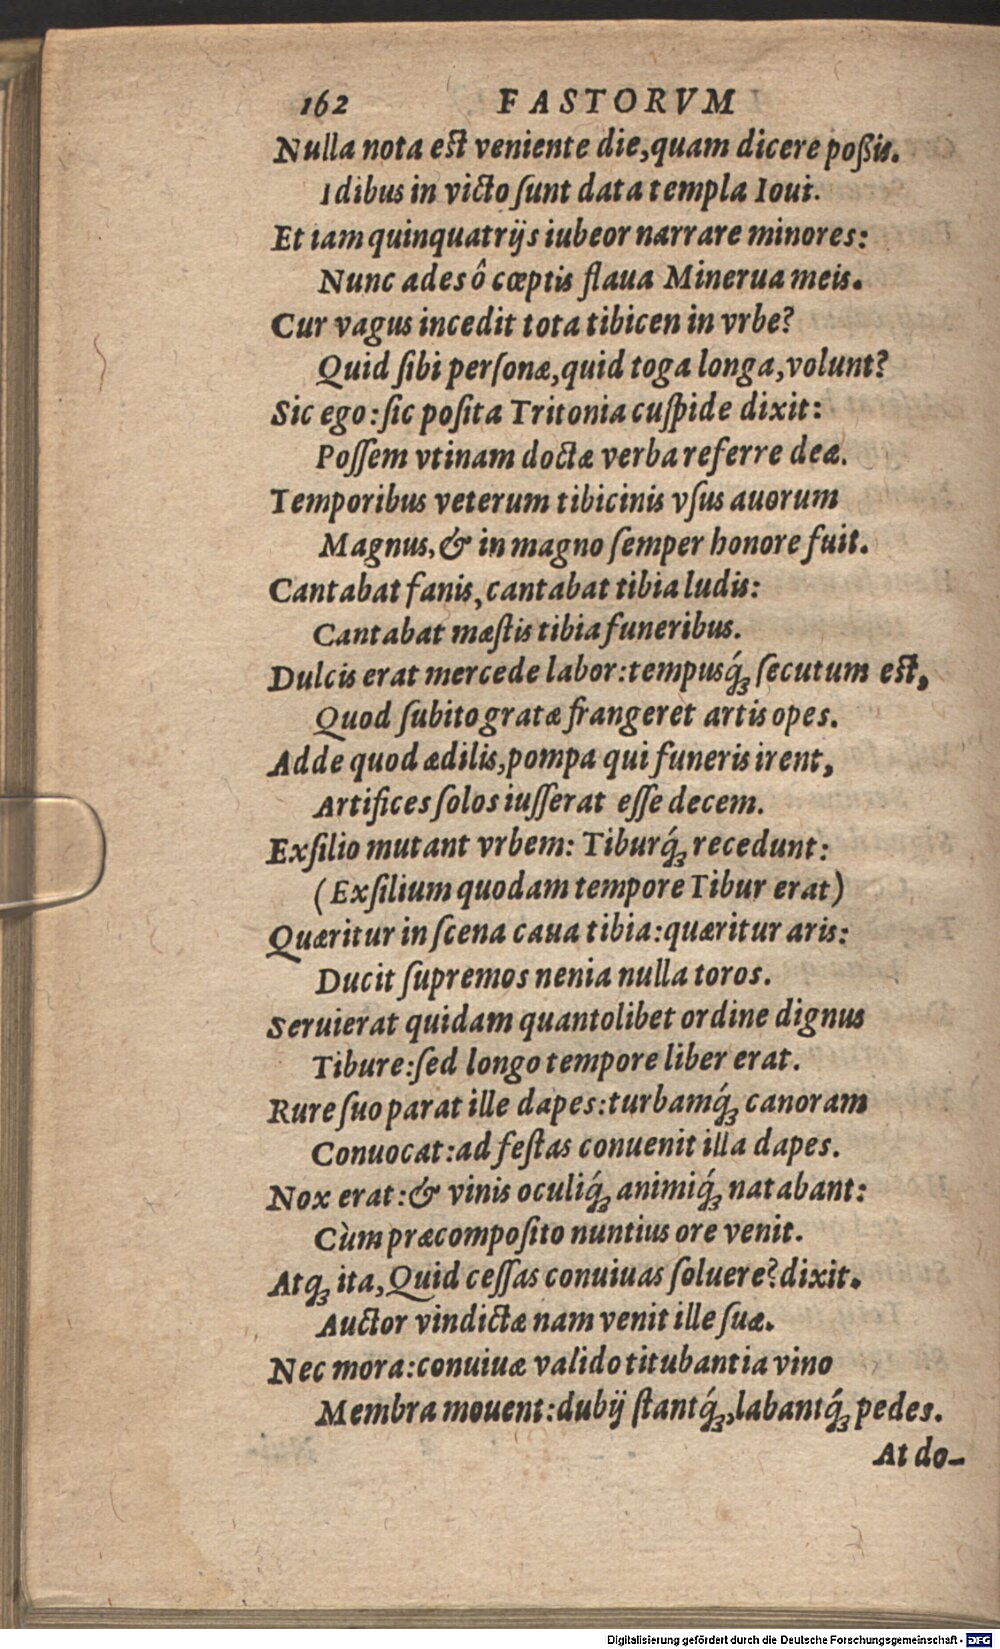 162 FASTORVM
Nulla nota est veniente die, quam dicere poßis.
Idibus in victo ſunt data templa Ioui.
Et iam quinquatrijs iubeor narrare minores:
Nunc ades ô cœptis flaua Minerua meis.
Cur vagus incedit tota tibicen in vrbe?
Quid ſibi perſonæ, quid toga longa, volunt?
Sic ego: ſic poſita Tritonia cuſpide dixit:
Poſſem vtinam doctæ verba referre deæ.
Temporibus veterum tibicinis vſus auorum
Magnus, & in magno ſemper honore fuit.
Cantabat fanis, cantabat tibia ludis:
Cantabat mæſtis tibia funeribus.
Dulcis erat mercede labor: tempusq́ꝫ ſecutum est,
Quod ſubito gratæ frangeret artis opes.
Adde quod ædilis, pompa qui funeris irent,
Artifices ſolos iuſſerat eſſe decem.
Exſilio mutant vrbem: Tiburq́ꝫ recedunt:
(Exſilium quodam tempore Tibur erat)
Quæritur in ſcena caua tibia: quæritur aris:
Ducit ſupremos nenia nulla toros.
Seruierat quidam quantolibet ordine dignus
Tibure: ſed longo tempore liber erat.
Rure ſuo parat ille dapes: turbamq́ꝫ canoram
Conuocat: ad feſtas conuenit illa dapes.
Nox erat: & vinis oculiq́ꝫ animiq́ꝫ natabant:
Cùm præcompoſito nuntius ore venit.
Atqꝫ ita, Quid ceſſas conuiuas ſoluere? dixit.
Auctor vindictæ nam venit ille ſuæ.
Nec mora: conuiuæ valido titubantia vino
Membra mouent: dubij ſtantq́ꝫ, labantq́ꝫ pedes.
At do-
Digitalisierung gefördert durch die Deutsche Forschungsgemeinschaft - DFG